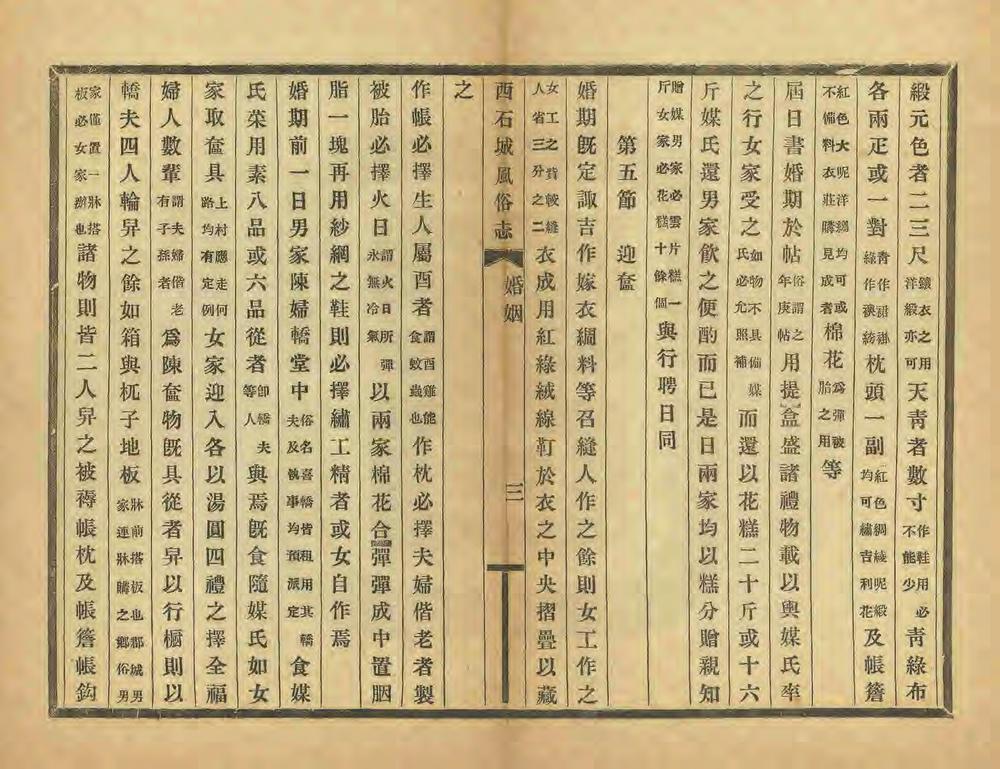 緞元色者二三尺鑲衣之用洋緞亦可天靑者數寸作鞋用必不能少靑綠布
各兩疋或一對靑作綠作枕頭一副紅色綢綾呢緞均可繡吉利花及帳簷
紅色大呢洋縐均可或不備料衣莊購見成者棉花爲彈被胎之用等
屆日書婚期於帖俗謂之年庚帖用提盒盛諸禮物載以輿媒氏率
之行女家受之如物不具備媒氏必允照補而還以花糕二十斤或十六
斤媒氏還男家飮之便酌而已是日兩家均以糕分贈親知
贈媒男家必雲片糕一斤女家必花糕十餘個與行聘日同
第五節　迎奩
婚期旣定諏吉作嫁衣綢料等召縫人作之餘則女工作之
女工之貲較縫人省三分之二衣成用紅綠絨線釘於衣之中央摺疊以藏
酉石城風俗志　婚姻　三
之
作帳必擇生人屬酉者謂酉雞能食蚊蟲也作枕必擇夫婦偕老者製
被胎必擇火日謂火日所彈永無冷氣以兩家棉花合彈彈成中置胭
脂一塊再用紗網之鞋則必擇繡工精者或女自作焉
婚期前一日男家陳婦轎堂中俗名喜轎皆租用其轎夫及執事均預派定食媒
氏菜用素八品或六品從者卽轎夫等人與焉旣食隨媒氏如女
家取奩具上村應走何路均有定例女家迎入各以湯圓四禮之擇全福
婦人數輩謂夫婦偕老有子孫者爲陳奩物旣具從者舁以行櫥則以
轎夫四人輪舁之餘如箱與杌子地板牀前搭板也郡城男家連牀購之鄕俗男
家僅置一牀搭板必女家辦也諸物則皆二人舁之被褥帳枕及帳簷帳鈎